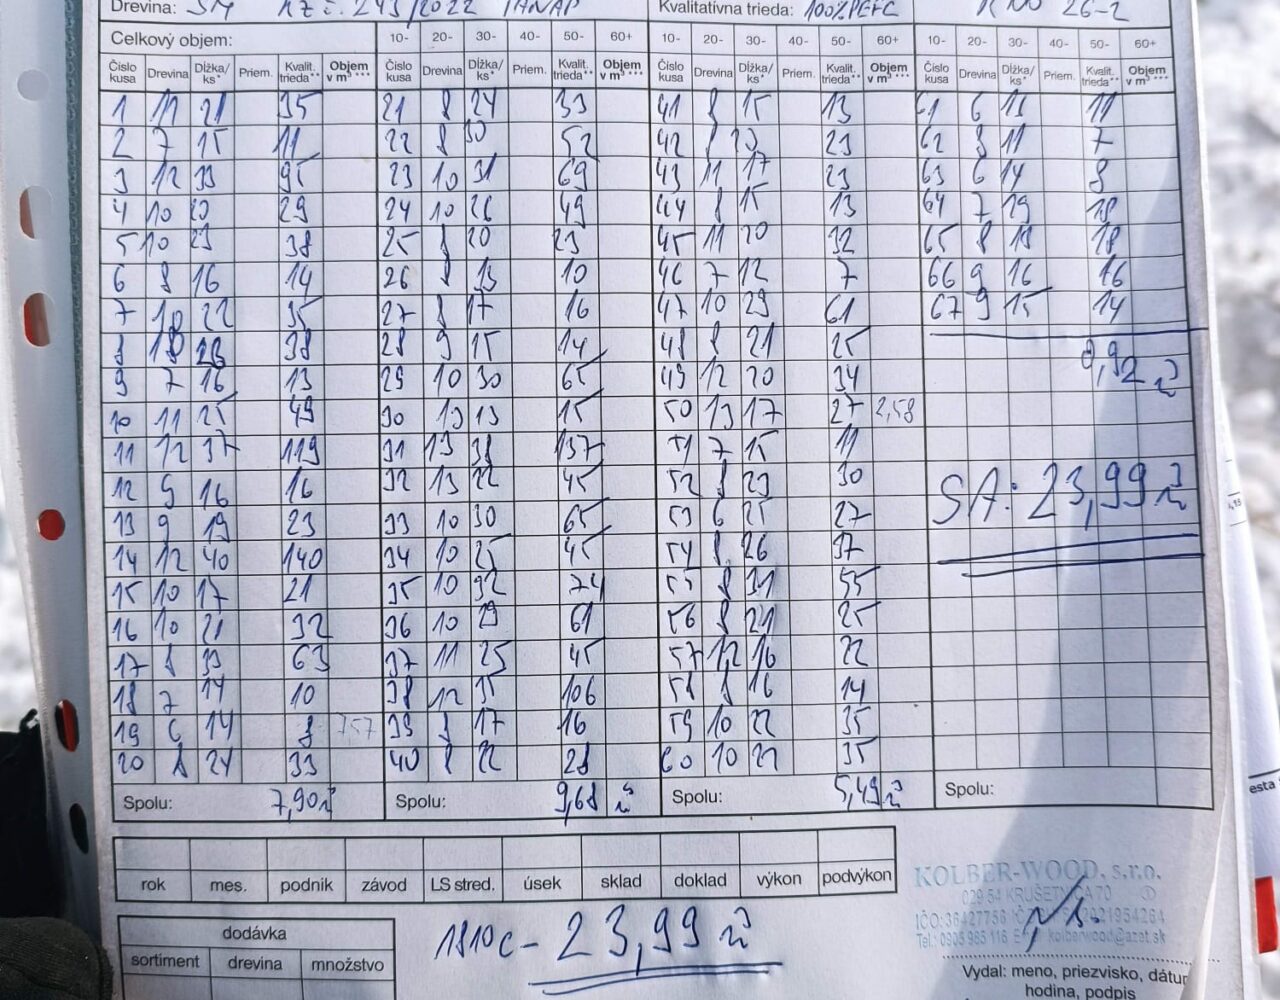 Drevina: SM KZ č. 243/2022 TANAP Kvalitatívna trieda: 100% PEFC
Celkový objem: 10- 20- 30- 40- 50- 60+ 10- 20- 30- 40- 50- 60+ 10- 20- 30- 40- 50- 60+
Číslo kusa Drevina Dĺžka/ks* Priem. Kvalit. trieda** Objem v m³*** Číslo kusa Drevina Dĺžka/ks* Priem. Kvalit. trieda** Objem v m³*** Číslo kusa Drevina Dĺžka/ks* Priem. Kvalit. trieda** Objem v m³*** Číslo kusa Drevina Dĺžka/ks* Priem. Kvalit. trieda** Objem v m³***
1 11 21 35 21 8 24 33 41 8 15 13 61 6 11
2 7 15 11 22 8 30 52 42 8 23 62 8 11 7
3 12 33 95 23 10 31 69 43 11 17 23 63 6 14 8
4 10 20 29 24 10 26 49 44 8 15 13 64 7 19 18
5 10 23 38 25 8 20 23 45 11 20 32 65 8 18 18
6 8 16 14 26 8 13 10 46 7 12 7 66 9 16 16
7 10 22 35 27 8 17 16 47 10 29 61 67 9 15 14
8 38 28 9 15 14 48 8 21 25
9 7 16 13 29 10 30 65 49 12 20 34 0,92 m³
10 11 25 49 30 13 13 15 50 13 17 27 2,58
11 12 37 119 31 13 38 137 51 7 15 11
12 9 16 16 32 13 22 45 52 8 23 30 SA: 23,99 m³
13 9 19 23 33 10 30 65 53 6 25 27
14 12 40 140 34 10 25 45 54 8 26 37
15 10 17 21 35 10 32 74 55 8 31 55
16 10 21 32 36 10 29 61 56 8 21 25
17 8 33 63 37 11 25 45 57 12 16 22
18 7 14 10 38 12 35 106 58 8 16 14
19 6 14 8 757 39 8 17 16 59 10 22 35
20 8 24 33 40 8 22 28 60 10 22 35
Spolu: 7,90 m³ Spolu: 9,68 m³ Spolu: 5,49 m³ Spolu:
rok mes. podnik závod LS stred. úsek sklad doklad výkon podvýkon
KOLBER-WOOD, s.r.o.
029 54 KRUŠETNICA 70
dodávka
sortiment drevina množstvo
1810c - 23,99 m³
kolberwood@azet.sk
Vydal: meno, priezvisko, dátum
hodina, podpis